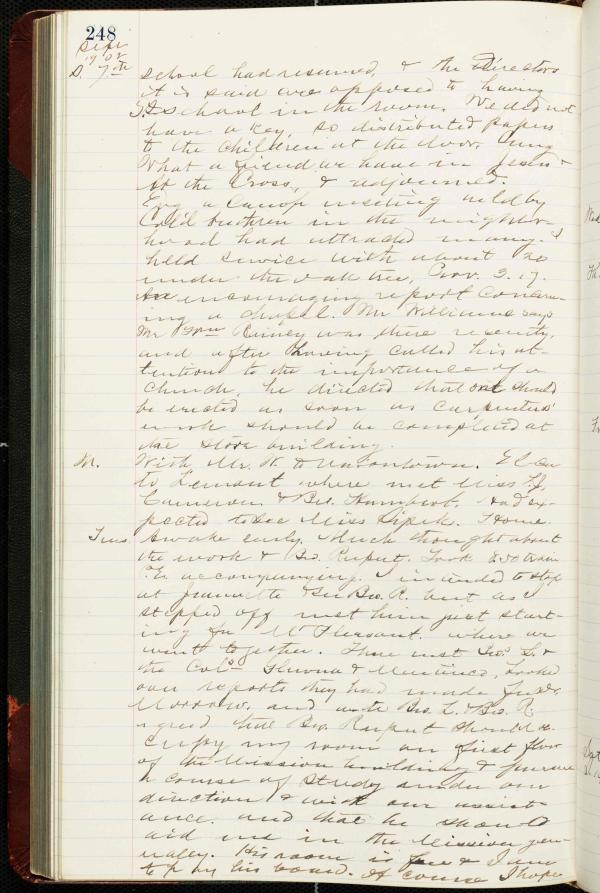 248
Sept
1902
S. 7th
school had resumed, & the Directors
it is said are opposed to having
S. S school in the room. We did not
have a key, so distributed papers
to the children at the door, sung
What a friend we have in Jesus &
At the Cross, & adjourned.
Evg a camp meeting held by
Col'd brethren in the neighbor-
hood had attracted many. I
held service with about 20
under the oak tree, Prov. 3.17.
An encouraging report concern-
ing a chapel. Mr Williams says
Mr Wm Rainey was there recently,
and after having called his at-
tention to the importance of a
church, he directed that one should
be erected as soon as carpenters'
work should be completed at
the store building.
M. With Mr. W. to Uniontown.
to Lemont where met Miss
Cameron & Bro. Humbert. Had ex-
pected to see Miss Lipek. Home.
Tues. Awake early. Much thought about
the work & Bro. Ruput. Took 8.50 train
accompanying. I intended to stop
at Jeannette & see Bro. R. but as I
stepped off met him just start-
ing for Mt Pleasant, where we
went together. There met Bro. L. &
the Col's & looked
over reports they had made for Dr.
Morrow, and with Bro. L. & Bro. R.
agreed that Bro. Ruput should oc-
cupy my room on first floor
of the Mission building & pursue
a course of study under our
direction & with our assist-
ance and that he should
aid us in the Mission gen-
erally. His room is free & I am
to pay his board. Of course I hope